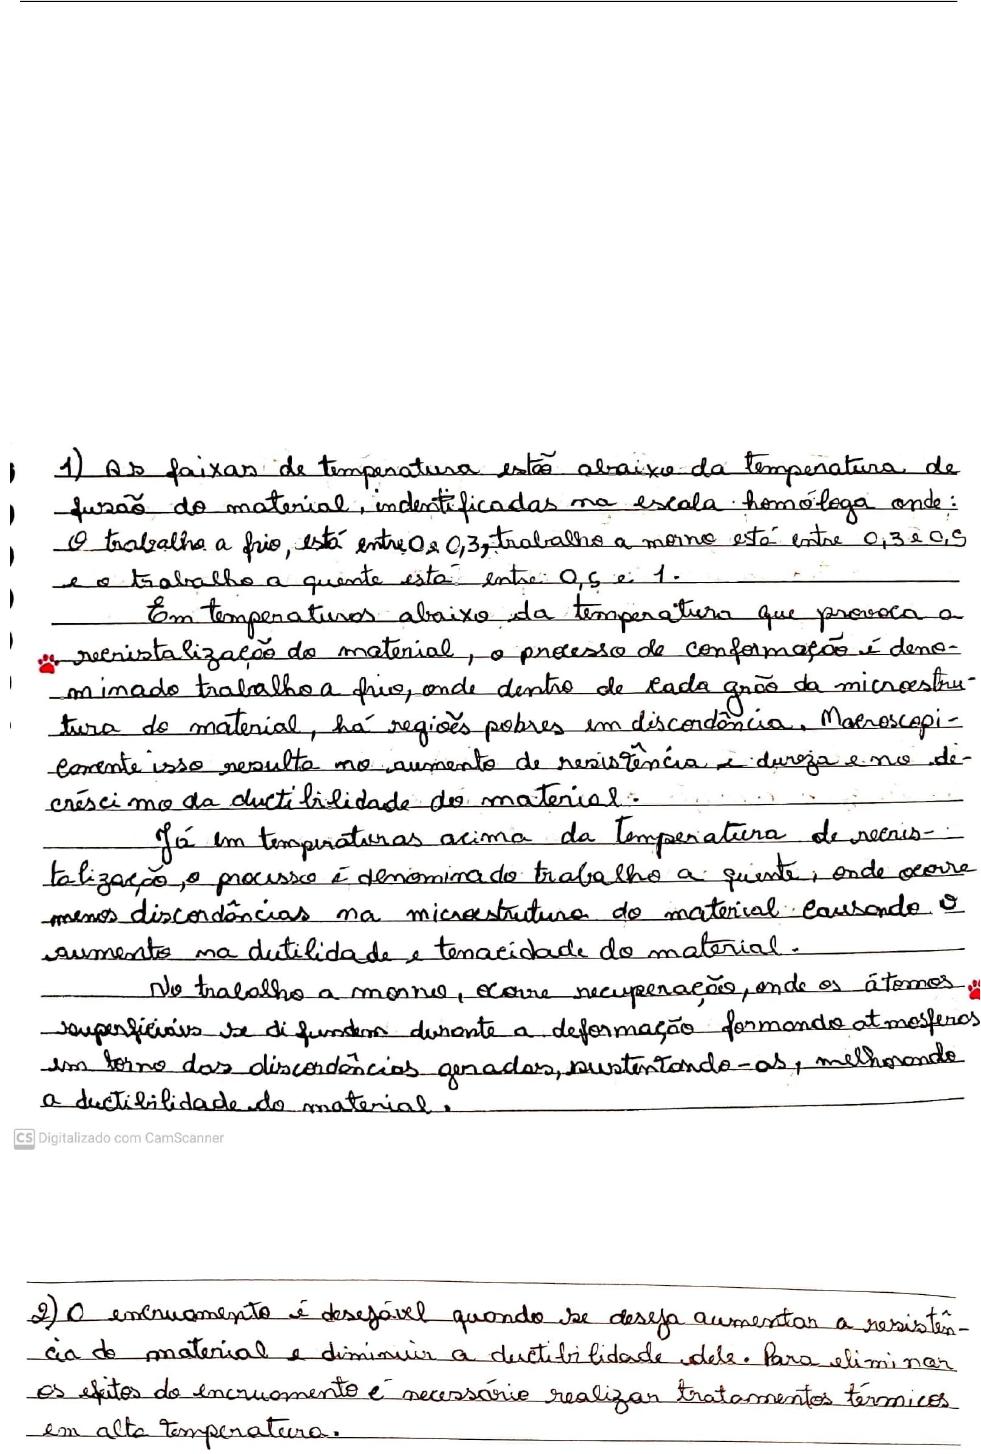 1) As faixas de temperatura estão abaixo da temperatura de
fusão do material, indentificadas na escala homóloga onde:
O trabalho a frio, está entre 0 e 0,3, trabalho a morno está entre 0,3 e 0,5
e o trabalho a quente está entre 0,5 e 1.
Em temperaturas abaixo da temperatura que provoca a
recristalização do material, o processo de conformação é deno-
minado trabalho a frio, onde dentro de cada grão da microestru-
tura do material, há regiões pobres em discordância. Macroscopi-
camente isso resulta no aumento de resistência e dureza e no de-
créscimo da ductibilidade do material.
Já em temperaturas acima da temperatura de recris-
talização, o processo é denominado trabalho a quente, onde ocorre
menos discordâncias na microestrutura do material causando o
aumento na dutilidade e tenacidade do material.
No trabalho a morno, ocorre recuperação, onde os átomos
superficiais se difundem durante a deformação formando atmosferas
em torno das discordâncias geradas, sustentando-as, melhorando
a ductibilidade do material.
CS Digitalizado com CamScanner
2) O encruamento é desejável quando se deseja aumentar a resistên-
cia do material e diminuir a ductibilidade dele. Para eliminar
os efeitos do encruamento é necessário realizar tratamentos térmicos
em alta temperatura.